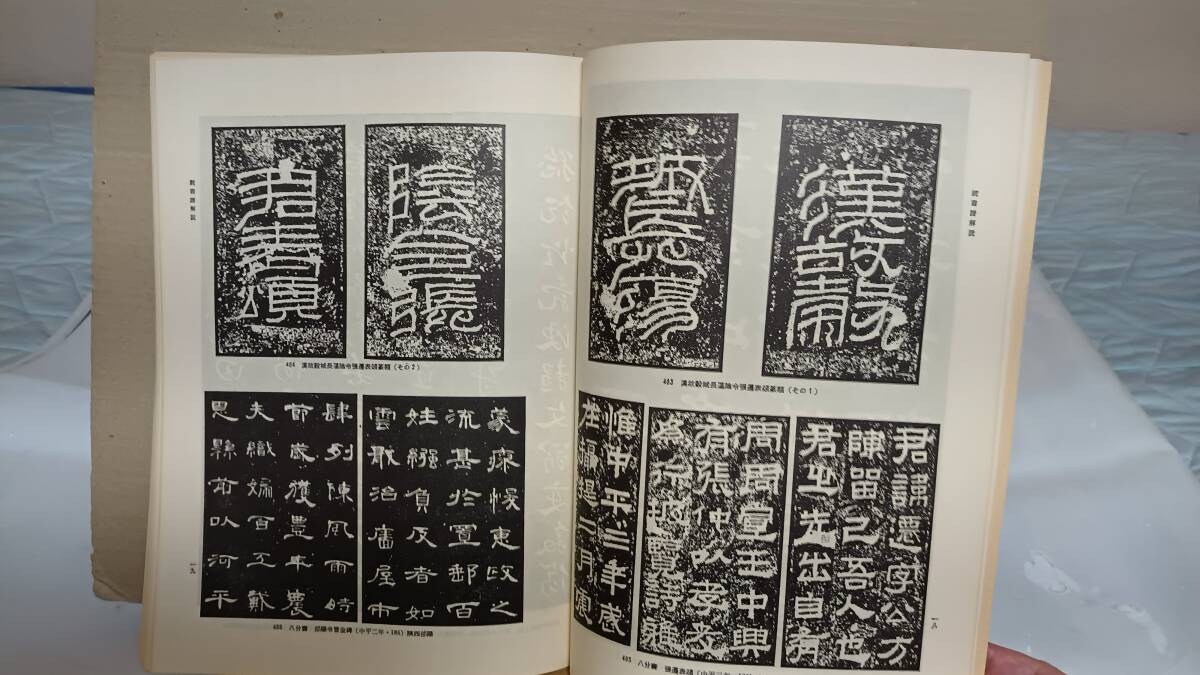 漢故穀
城長蕩
483 漢故穀城長蕩陰令張遷表頌篆額(その1)
君諱遷字公方
陳留己吾人也
君之先出自有
周周宣王中興
有張仲以孝友
為行披覽詩雅
惟中平三年歲
在攝提二月震
485 八分書 張遷表頌(中平三年
一八
陰令張
君表頌
484 漢故穀城長蕩陰令張遷表頌篆額(その2)
蒙瘳悛惠政之
流甚於置郵百
姓繦負反者如
雲戢治廧屋市
肆列陳風雨時
節歲獲豐年農
夫織婦百工戴
恩縣前以河平
486 八分書 郃陽令曹全碑(中平二年・185)陝西郃陽
一九